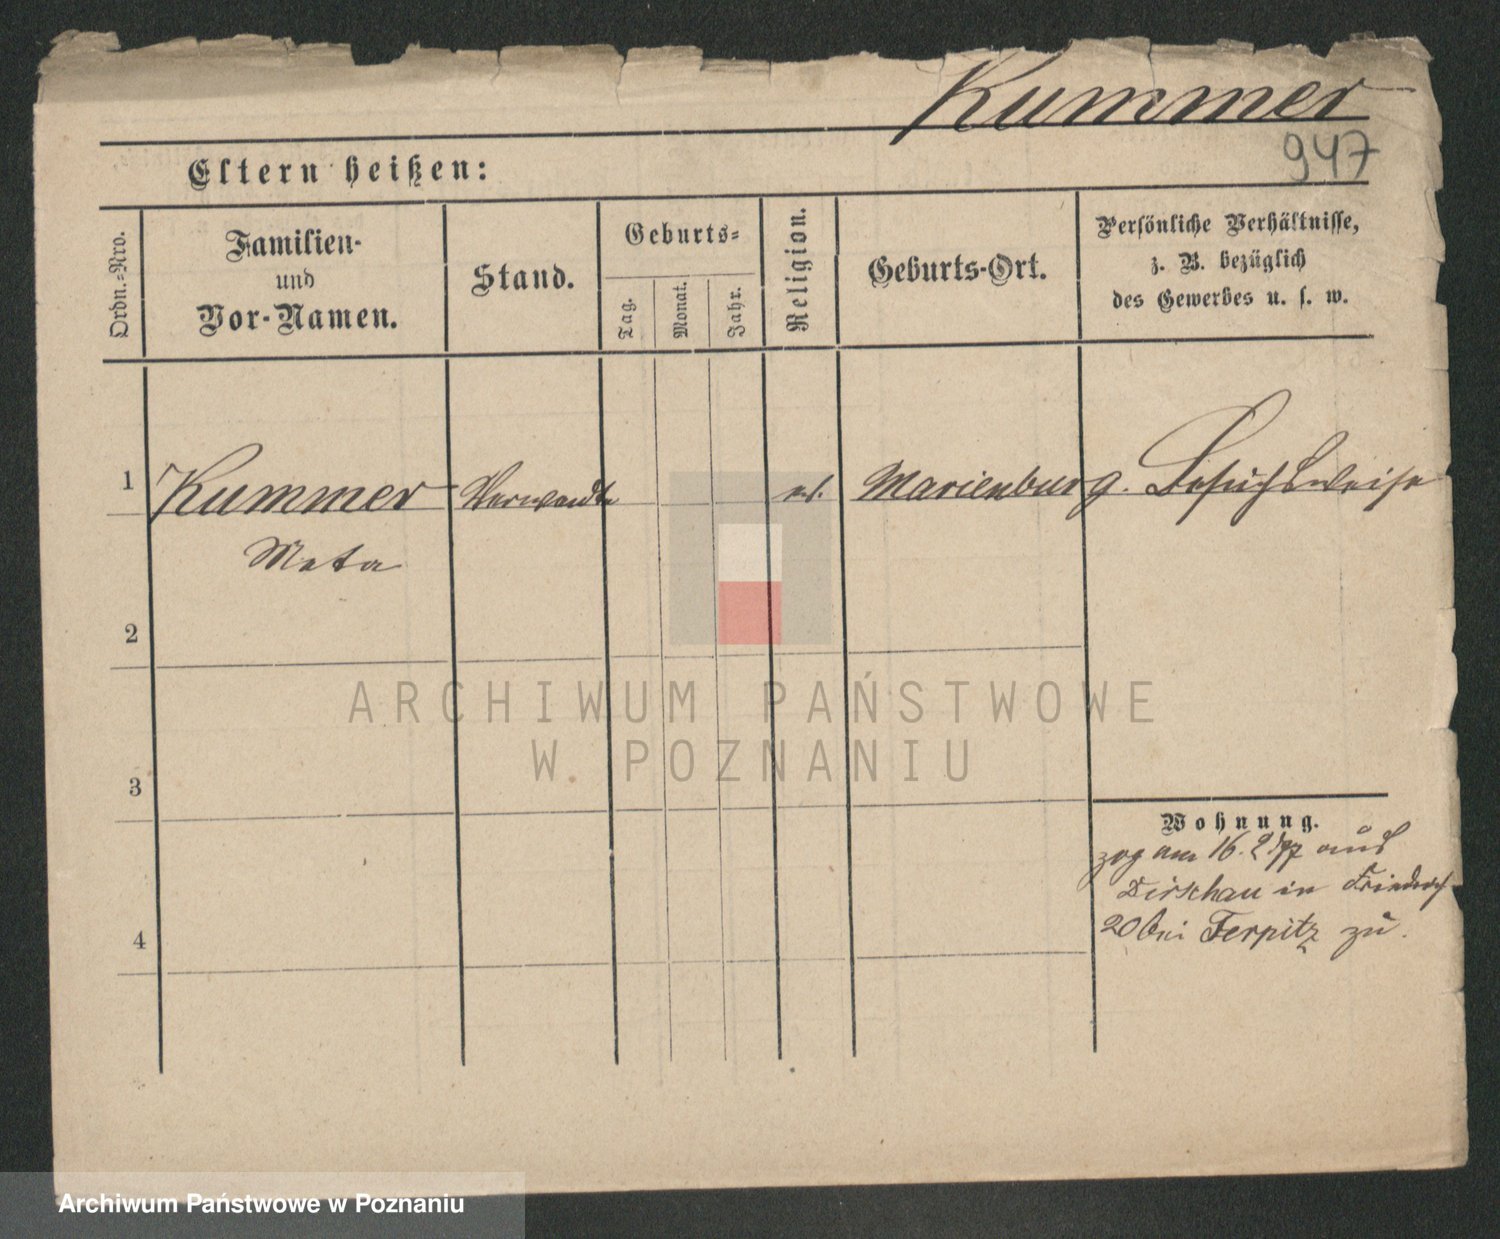 Kummer
947
Eltern heißen:
Ordn.-Nro.
Familien-
und
Vor-Namen.
Stand.
Geburts-
Tag.
Monat.
Jahr.
Religion.
Geburts-Ort.
Persönliche Verhältnisse,
z. B. bezüglich
des Gewerbes u. s. w.
1 Kummer Verwandte ev. Marienburg. Besuchsweise
Meta
2
3
4
Wohnung.
zog am 16. 2/97 aus
Dirschau in Friedrich
20 bei Terpitz zu.
ARCHIWUM PAŃSTWOWE
W POZNANIU
Archiwum Państwowe w Poznaniu